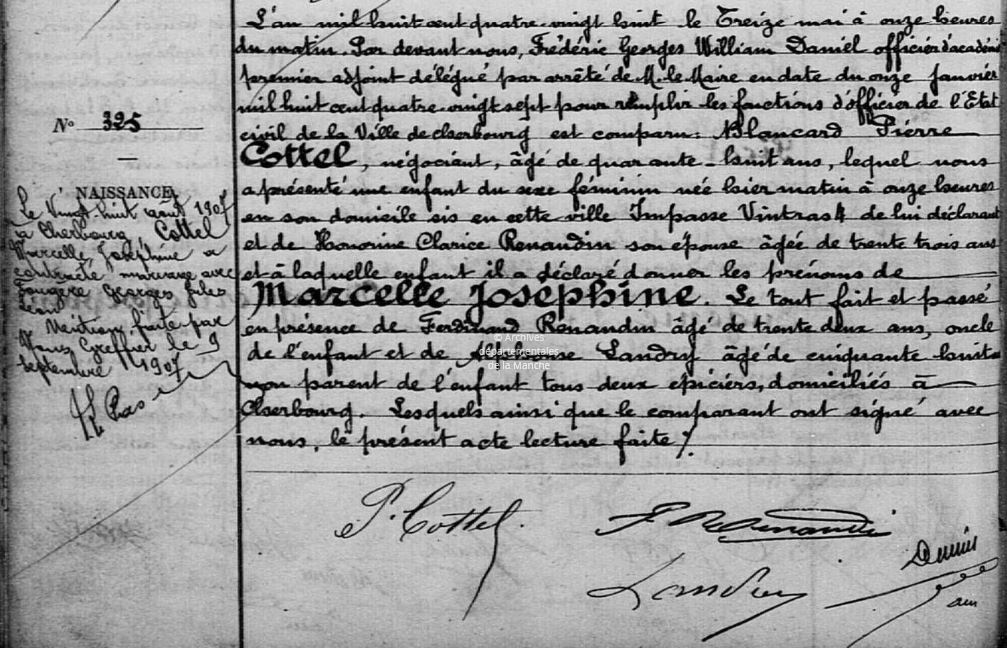 L'an mil huit cent quatre-vingt huit le Treize mai à onze heures
du matin. Par devant nous, Frédéric Georges William Daniel officier d'académie
premier adjoint délégué par arrêté de M. le Maire en date du onze Janvier
mil huit cent quatre-vingt sept pour remplir les fonctions d'officier de l'Etat
civil de la Ville de cherbourg est comparu: Blancard Pierre
Cottel, négociant, âgé de quarante-huit ans, lequel nous
a présenté une enfant du sexe féminin née hier matin à onze heures
en son domicile sis en cette ville Impasse Vintras 4 de lui déclarant
et de Honorine Clarice Renaudin son épouse âgée de trente trois ans
et à laquelle enfant il a déclaré donner les prénoms de
Marcelle Joséphine. Le tout fait et passé
en présence de Ferdinand Renaudin âgé de trente deux ans, oncle
de l'enfant et de Alphonse Landry âgé de cinquante huit
non parent de l'enfant tous deux épiciers, domiciliés à
Cherbourg. Lesquels ainsi que le comparant ont signé avec
nous, le présent acte lecture faite /.
N° 325
NAISSANCE
Le Vingt-huit août 1907
à Cherbourg Cottel
Marcelle, Joséphine a
contracté mariage avec
Fougère Georges Jules
Léon
Mention faite par
Nous Greffier le 9
septembre 1907
P. Cottel.
F. Renaudin
Landry
© Archives
départementales
de la Manche